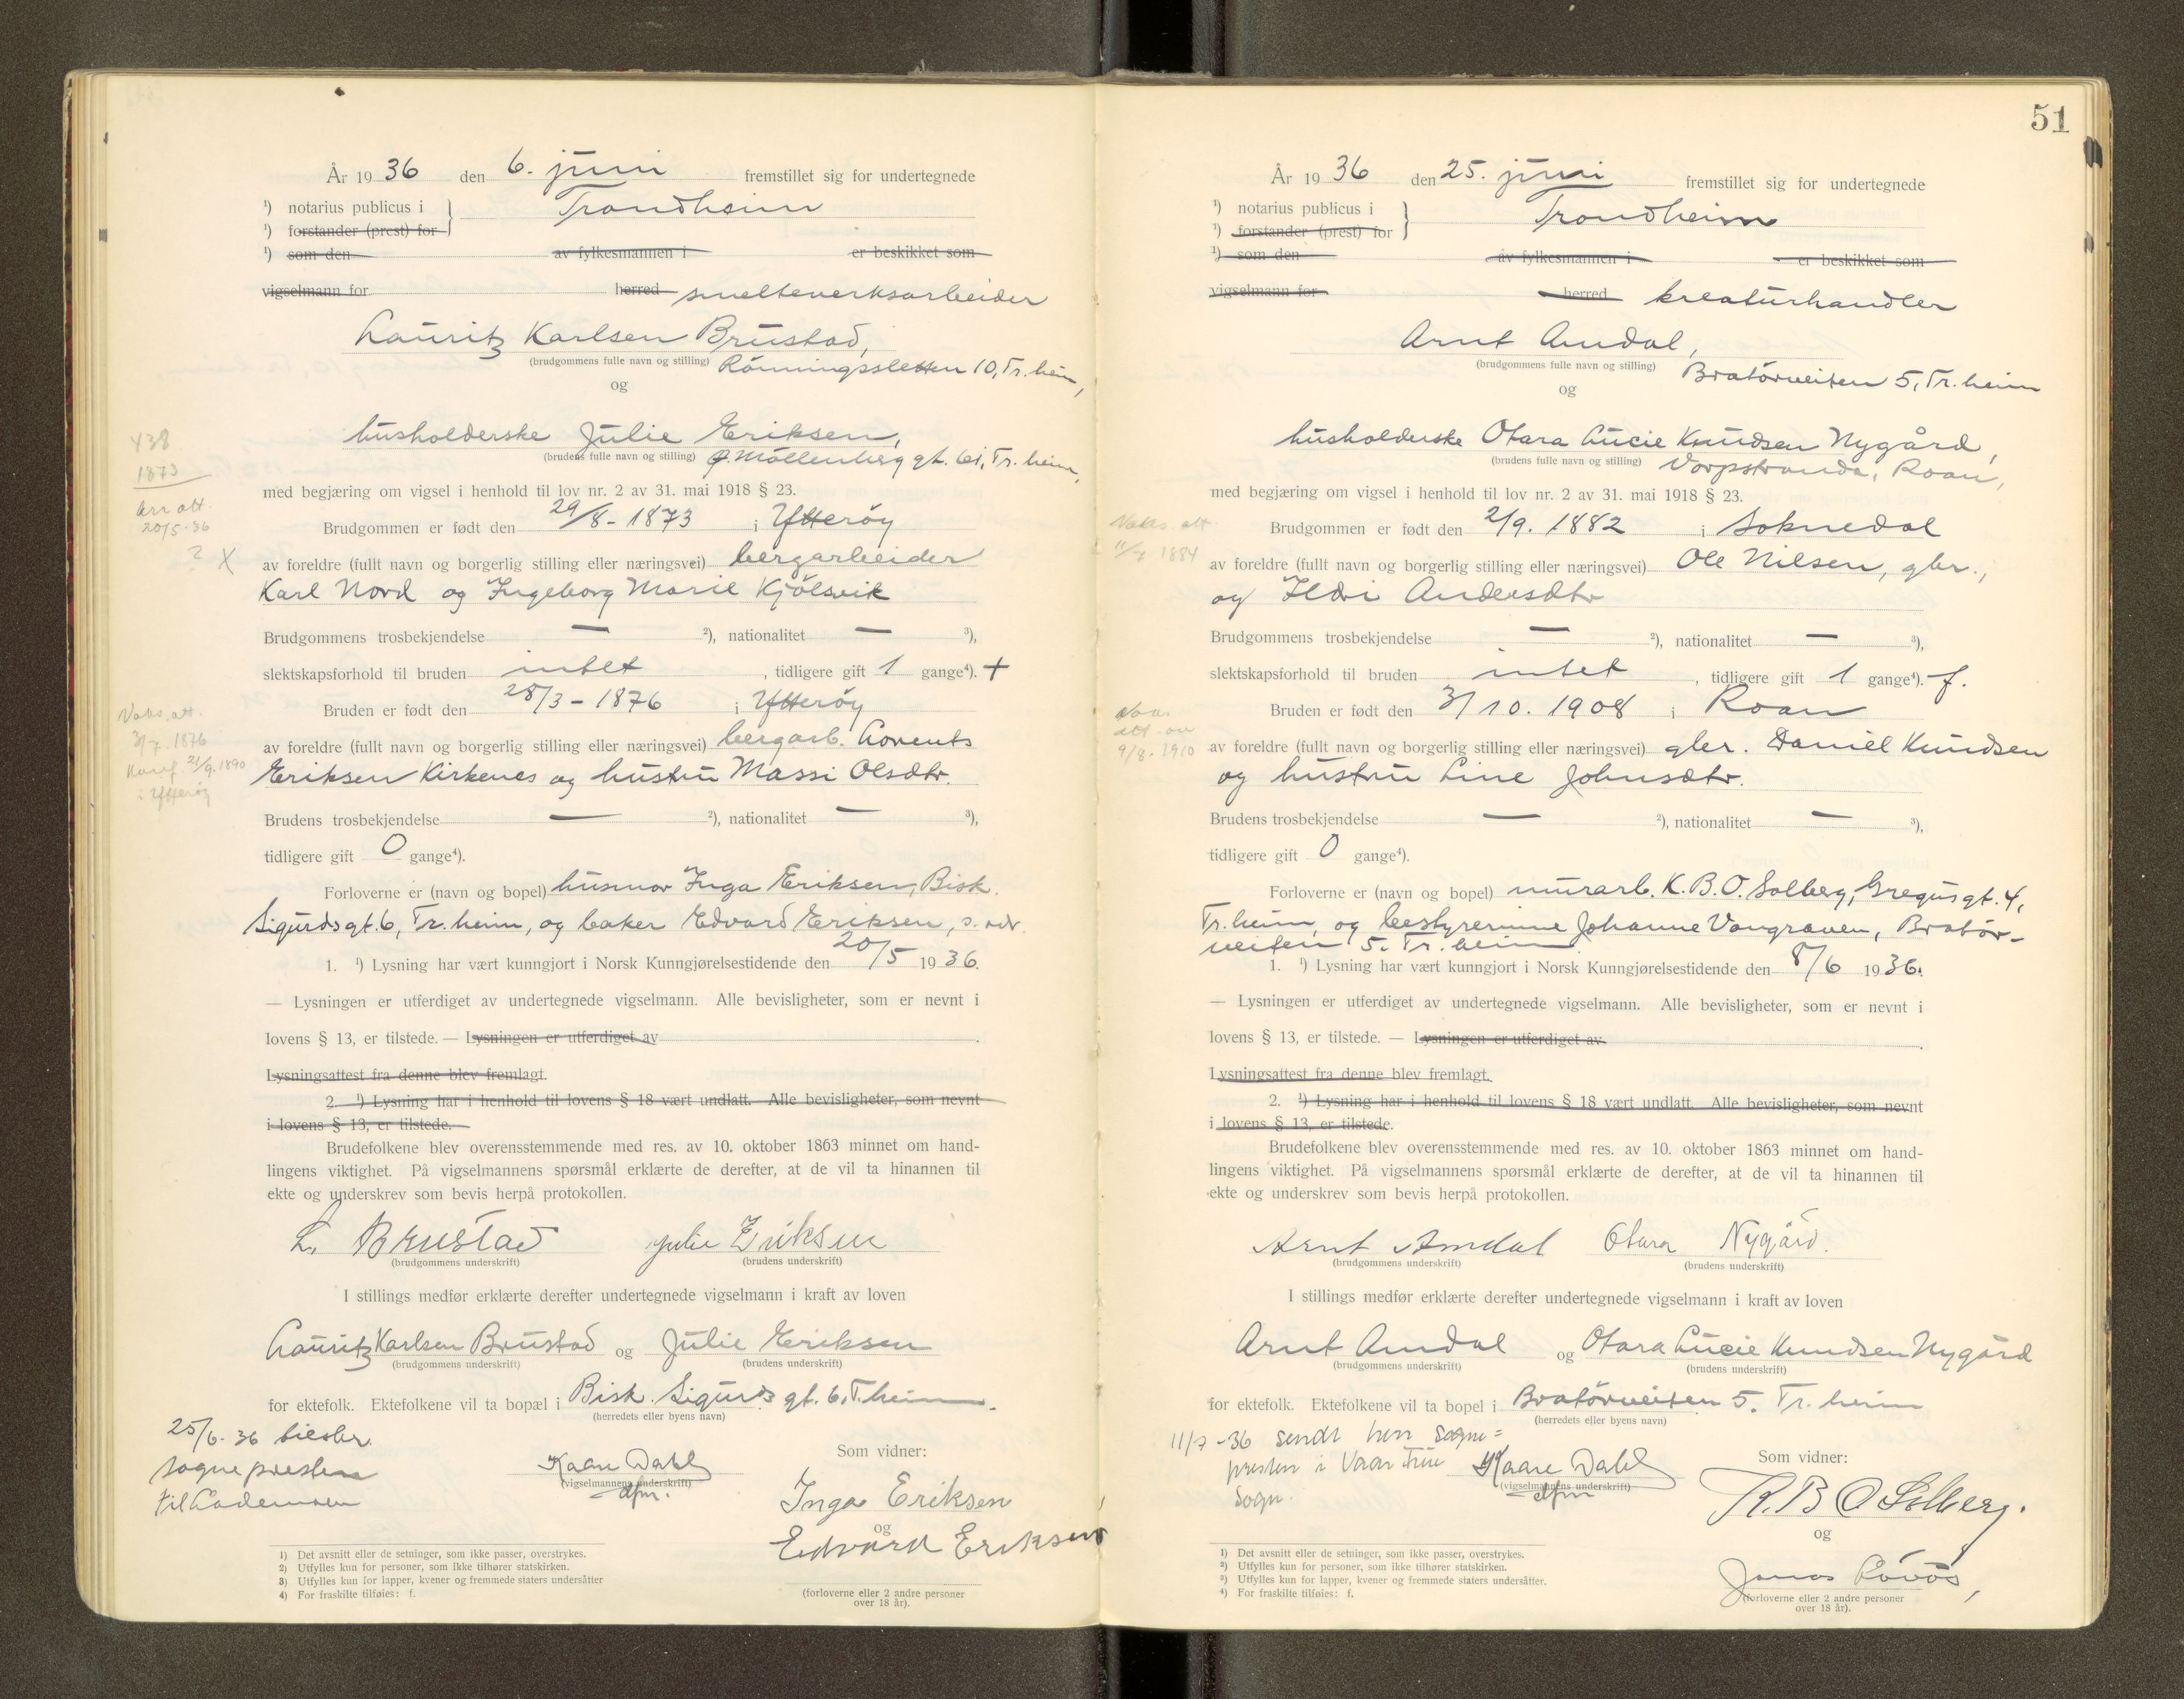 År 1936 den 6. juni fremstillet sig for undertegnede
¹) notarius publicus i Trondheim
¹) forstander (prest) for
¹) som den av fylkesmannen i er beskikket som
vigselmann for herred smelteverksarbeider
Lauritz Karlsen Brustad,
(brudgommens fulle navn og stilling) Rönningsletten 10, Tr.heim,
og
husholderske Julie Eriksen,
(brudens fulle navn og stilling) Ø. Möllenberg gt. 61, Tr.heim,
med begjæring om vigsel i henhold til lov nr. 2 av 31. mai 1918 § 23.
438
1873
att.
20/5-36
? X
Brudgommen er født den 29/8-1873 i Ytterøy
av foreldre (fullt navn og borgerlig stilling eller næringsvei) bergarbeider
Karl Nord og Ingeborg Marie Kjölsvik
Brudgommens trosbekjendelse — ²), nationalitet — ³),
slektskapsforhold til bruden intet, tidligere gift 1 gange⁴). +
Vaks. att.
3/7 1876
Konf. 21/9.1890
i Ytterøy
Bruden er født den 28/3-1876 i Ytterøy
av foreldre (fullt navn og borgerlig stilling eller næringsvei) bergarb. Lorents
Eriksen Kirkenes og hustru Massi Olsdtr.
Brudens trosbekjendelse — ²), nationalitet — ³),
tidligere gift 0 gange⁴).
Forloverne er (navn og bopel) husmor Inga Eriksen, Bisk.
Sigurds gt. 6, Tr.heim, og baker Edvard Eriksen, s. adr.
1. ¹) Lysning har vært kunngjort i Norsk Kunngjørelsestidende den 20/5 1936.
— Lysningen er utferdiget av undertegnede vigselmann. Alle bevisligheter, som er nevnt i
lovens § 13, er tilstede. — Lysningen er utferdiget av
Lysningsattest fra denne blev fremlagt.
2. ¹) Lysning har i henhold til lovens § 18 vært undlatt. Alle bevisligheter, som nevnt
i lovens § 13, er tilstede.
Brudefolkene blev overensstemmende med res. av 10. oktober 1863 minnet om hand-
lingens viktighet. På vigselmannens spørsmål erklærte de derefter, at de vil ta hinannen til
ekte og underskrev som bevis herpå protokollen.
L. Brustad Julie Eriksen
(brudgommens underskrift) (brudens underskrift)
I stillings medfør erklærte derefter undertegnede vigselmann i kraft av loven
Lauritz Karlsen Brustad og Julie Eriksen
(brudgommens underskrift) (brudens underskrift)
for ektefolk. Ektefolkene vil ta bopæl i Bisk. Sigurds gt. 6, T.heim.
(herredets eller byens navn)
25/6-36
sognepresten
til Lademoen
Kaare Dahl
(vigselmannens underskrift)
dfm.
Som vidner:
Inga Eriksen
og
Edvard Eriksen
(forloverne eller 2 andre personer
over 18 år).
1) Det avsnitt eller de setninger, som ikke passer, overstrykes.
2) Utfylles kun for personer, som ikke tilhører statskirken.
3) Utfylles kun for lapper, kvener og fremmede staters undersåtter
4) For fraskilte tilføies: f.
51
År 1936 den 25. juni fremstillet sig for undertegnede
¹) notarius publicus i Trondheim
¹) forstander (prest) for
¹) som den av fylkesmannen i er beskikket som
vigselmann for herred kreaturhandler
Arnt Amdal,
(brudgommens fulle navn og stilling) Bratörveiten 5, Tr.heim
og
husholderske Otara Lucie Knudsen Nygård,
(brudens fulle navn og stilling) Vorpstranda, Roan,
med begjæring om vigsel i henhold til lov nr. 2 av 31. mai 1918 § 23.
Vaks. att.
1884
Brudgommen er født den 2/9. 1882 i Soknedal
av foreldre (fullt navn og borgerlig stilling eller næringsvei) Ole Nilsen, gbr.,
og Ildri Andersdtr
Brudgommens trosbekjendelse — ²), nationalitet — ³),
slektskapsforhold til bruden intet, tidligere gift 1 gange⁴). f.
Vaks.
att. av
9/8-1910
Bruden er født den 3/10. 1908 i Roan
av foreldre (fullt navn og borgerlig stilling eller næringsvei) gbr. Daniel Knudsen
og hustru Line Johnsdtr.
Brudens trosbekjendelse — ²), nationalitet — ³),
tidligere gift 0 gange⁴).
Forloverne er (navn og bopel) murarb. K. B. O. Solberg, Gregus gt. 4,
Tr.heim, og bestyrerinne Johanne Vongraven, Bratör-
veiten 5. Tr.heim
1. ¹) Lysning har vært kunngjort i Norsk Kunngjørelsestidende den 8/6 1936.
— Lysningen er utferdiget av undertegnede vigselmann. Alle bevisligheter, som er nevnt i
lovens § 13, er tilstede. — Lysningen er utferdiget av
Lysningsattest fra denne blev fremlagt.
2. ¹) Lysning har i henhold til lovens § 18 vært undlatt. Alle bevisligheter, som nevnt
i lovens § 13, er tilstede.
Brudefolkene blev overensstemmende med res. av 10. oktober 1863 minnet om hand-
lingens viktighet. På vigselmannens spørsmål erklærte de derefter, at de vil ta hinannen til
ekte og underskrev som bevis herpå protokollen.
Arnt Amdal Otara Nygård.
(brudgommens underskrift) (brudens underskrift)
I stillings medfør erklærte derefter undertegnede vigselmann i kraft av loven
Arnt Amdal og Otara Lucie Knudsen Nygård
(brudgommens underskrift) (brudens underskrift)
for ektefolk. Ektefolkene vil ta bopel i Bratörveiten 5. Tr.heim
(herredets eller byens navn)
11/7-36 sendt herr sogne=
presten i Vaar Frue
Sogn.
Kaare Dahl
(vigselmannens underskrift)
dfm
Som vidner:
K. B. O Solberg.
og
Jonas Lövås,
(forloverne eller 2 andre personer
over 18 år).
1) Det avsnitt eller de setninger, som ikke passer, overstrykes.
2) Utfylles kun for personer, som ikke tilhører statskirken.
3) Utfylles kun for lapper, kvener og fremmede staters undersåtter.
4) For fraskilte tilføies: f.